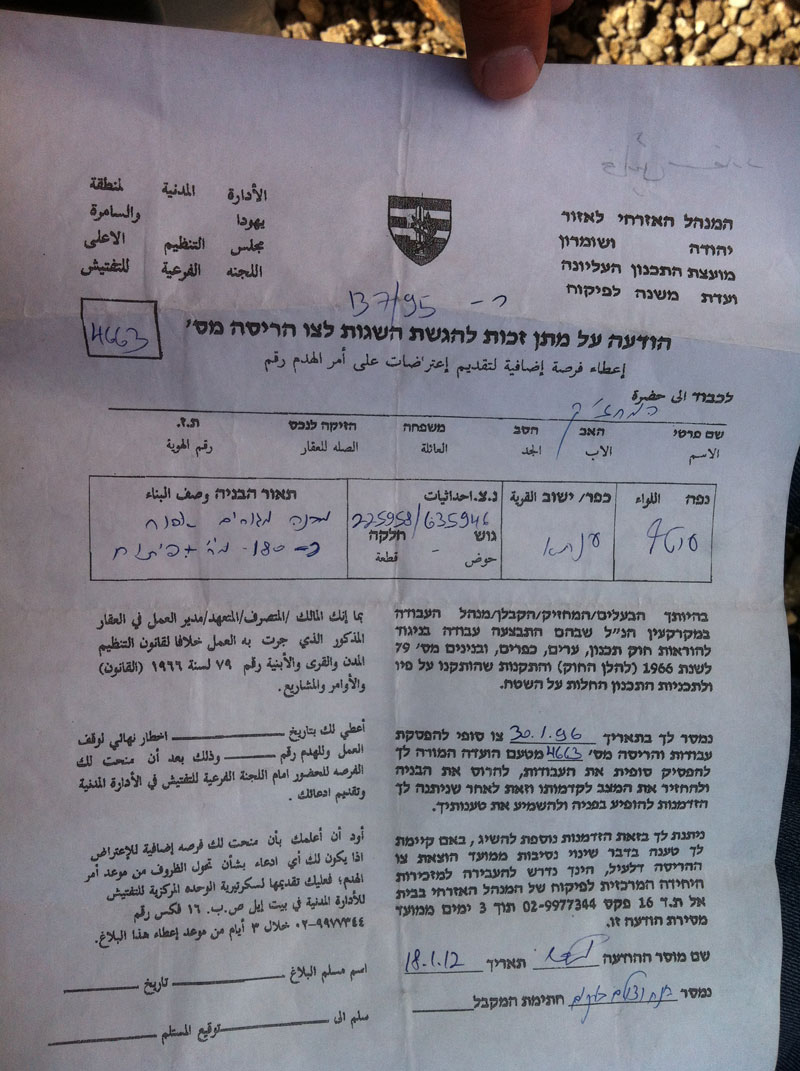 המנהל האזרחי לאזור
יהודה ושומרון
מועצת התכנון העליונה
ועדת משנה לפיקוח
الأدارة المدنية لمنطقة
يهودا والسامرة
مجلس التنظيم الاعلى
اللجنه الفرعية للتفتيش
ב- 137/95
הודעה על מתן זכות להגשת השגות לצו הריסה מס׳ 4663
إعطاء فرصة إضافية لتقديم إعتراضات على أمر الهدم رقم
לכבוד الى حضرة
המחזיק
שם פרטי האב הסב משפחה הזיקה לנכס ת.ז.
الاسم الاب الجد العائلة الصله للعقار رقم الهوية
נפה اللواء כפר/ ישוב القرية נ.צ. احداثيات תאור הבניה وصف البناء
ענתא 225958/635946
גוש חלקה
حوض قطعة
-
מבנה מגורים
כ- 180 מ״ר
בהיותך הבעלים/המחזיק/הקבלן/מנהל העבודה
במקרקעין הנ״ל שבהם התבצעה עבודה בניגוד
להוראות חוק תכנון, ערים, כפרים, ובנינים מס׳ 79
לשנת 1966 (להלן החוק) והתקנות שהותקנו על פיו
ולתכניות התכנון החלות על השטח.
נמסר לך בתאריך 30.1.96 צו סופי להפסקת
עבודות והריסה מס׳ 4663 מטעם הועדה המורה לך
להפסיק סופית את העבודות, להרוס את הבניה
ולהחזיר את המצב לקדמותו וזאת לאחר שניתנה לך
הזדמנות להופיע בפניה ולהשמיע את טענותיך.
ניתנת לך בזאת הזדמנות נוספת להשיג, באם קיימת
לך טענה בדבר שינוי נסיבות ממועד הוצאת צו
ההריסה דלעיל, הינך נדרש להעבירה למזכירות
היחידה המרכזית לפיקוח של המנהל האזרחי בבית
אל ת.ד 16 פקס 02-9977344 תוך 3 ימים ממועד
מסירת הודעה זו.
שם מוסר ההודעה תאריך 18.1.12
נמסר חתימת המקבל
بما إنك المالك /المتصرف/المتعهد/مدير العمل في العقار
المذكور الذي جرت به العمل خلافا لقانون التنظيم
المدن والقرى والأبنية رقم ٧٩ لسنة ١٩٦٦ (القانون)
والأوامر والمشاريع.
أعطي لك بتاريخ اخطار نهائي لوقف
العمل وللهدم رقم وذلك بعد أن منحت لك
الفرصه للحضور امام اللجنة الفرعية للتفتيش في الأدارة المدنية
وتقديم ادعائك.
أود أن أعلمك بأن منحت لك فرصه إضافية للإعتراض
اذا يكون لك أي ادعاء بشأن تحول الظروف من موعد أمر
الهدم، فعليك تقديمها لسكرتيرية الوحده المركزية للتفتيش
للأدارة المدنية في بيت إيل ص.ب. ١٦ فكس رقم
٠٢-٩٩٧٧٣٤٤ خلال ٣ أيام من موعد إعطاء هذا البلاغ.
اسم مسلم البلاغ تاريخ
سلم الى توقيع المستلم